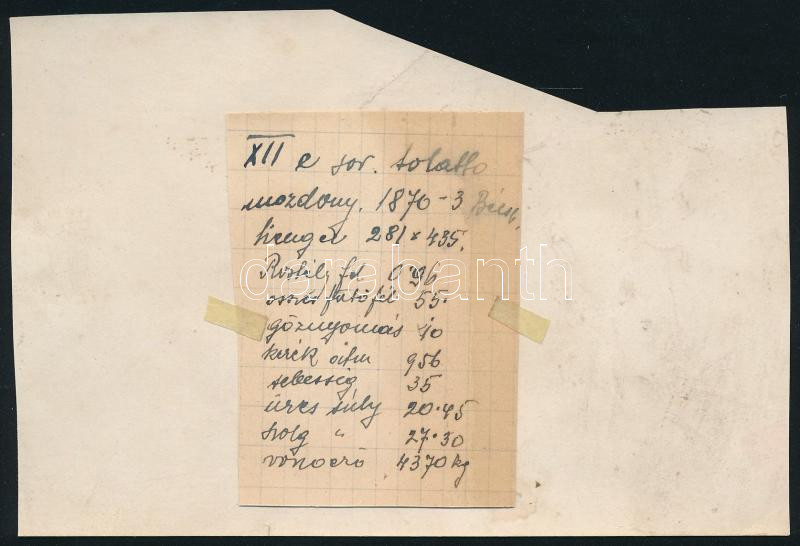 XII e sor. tolatto
mozdony. 1870-3 Bécs,
henger 281 x 435.
Rostély fel 0.96
összes fűtőfel 55.
gőznyomás 10
kerék átm 956
sebesség 35
üres súly 20.45
szolg " 27.30
vonóerő 4370 kg
darabanth